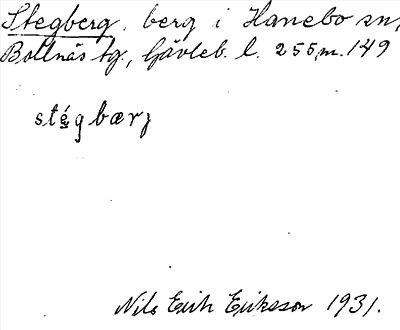 Stegberg, berg i Hanebo sn,
Bollnäs tg., Gävleb. l. 255, m. 149
stégbærj
Nils Erik Eriksson 1931.